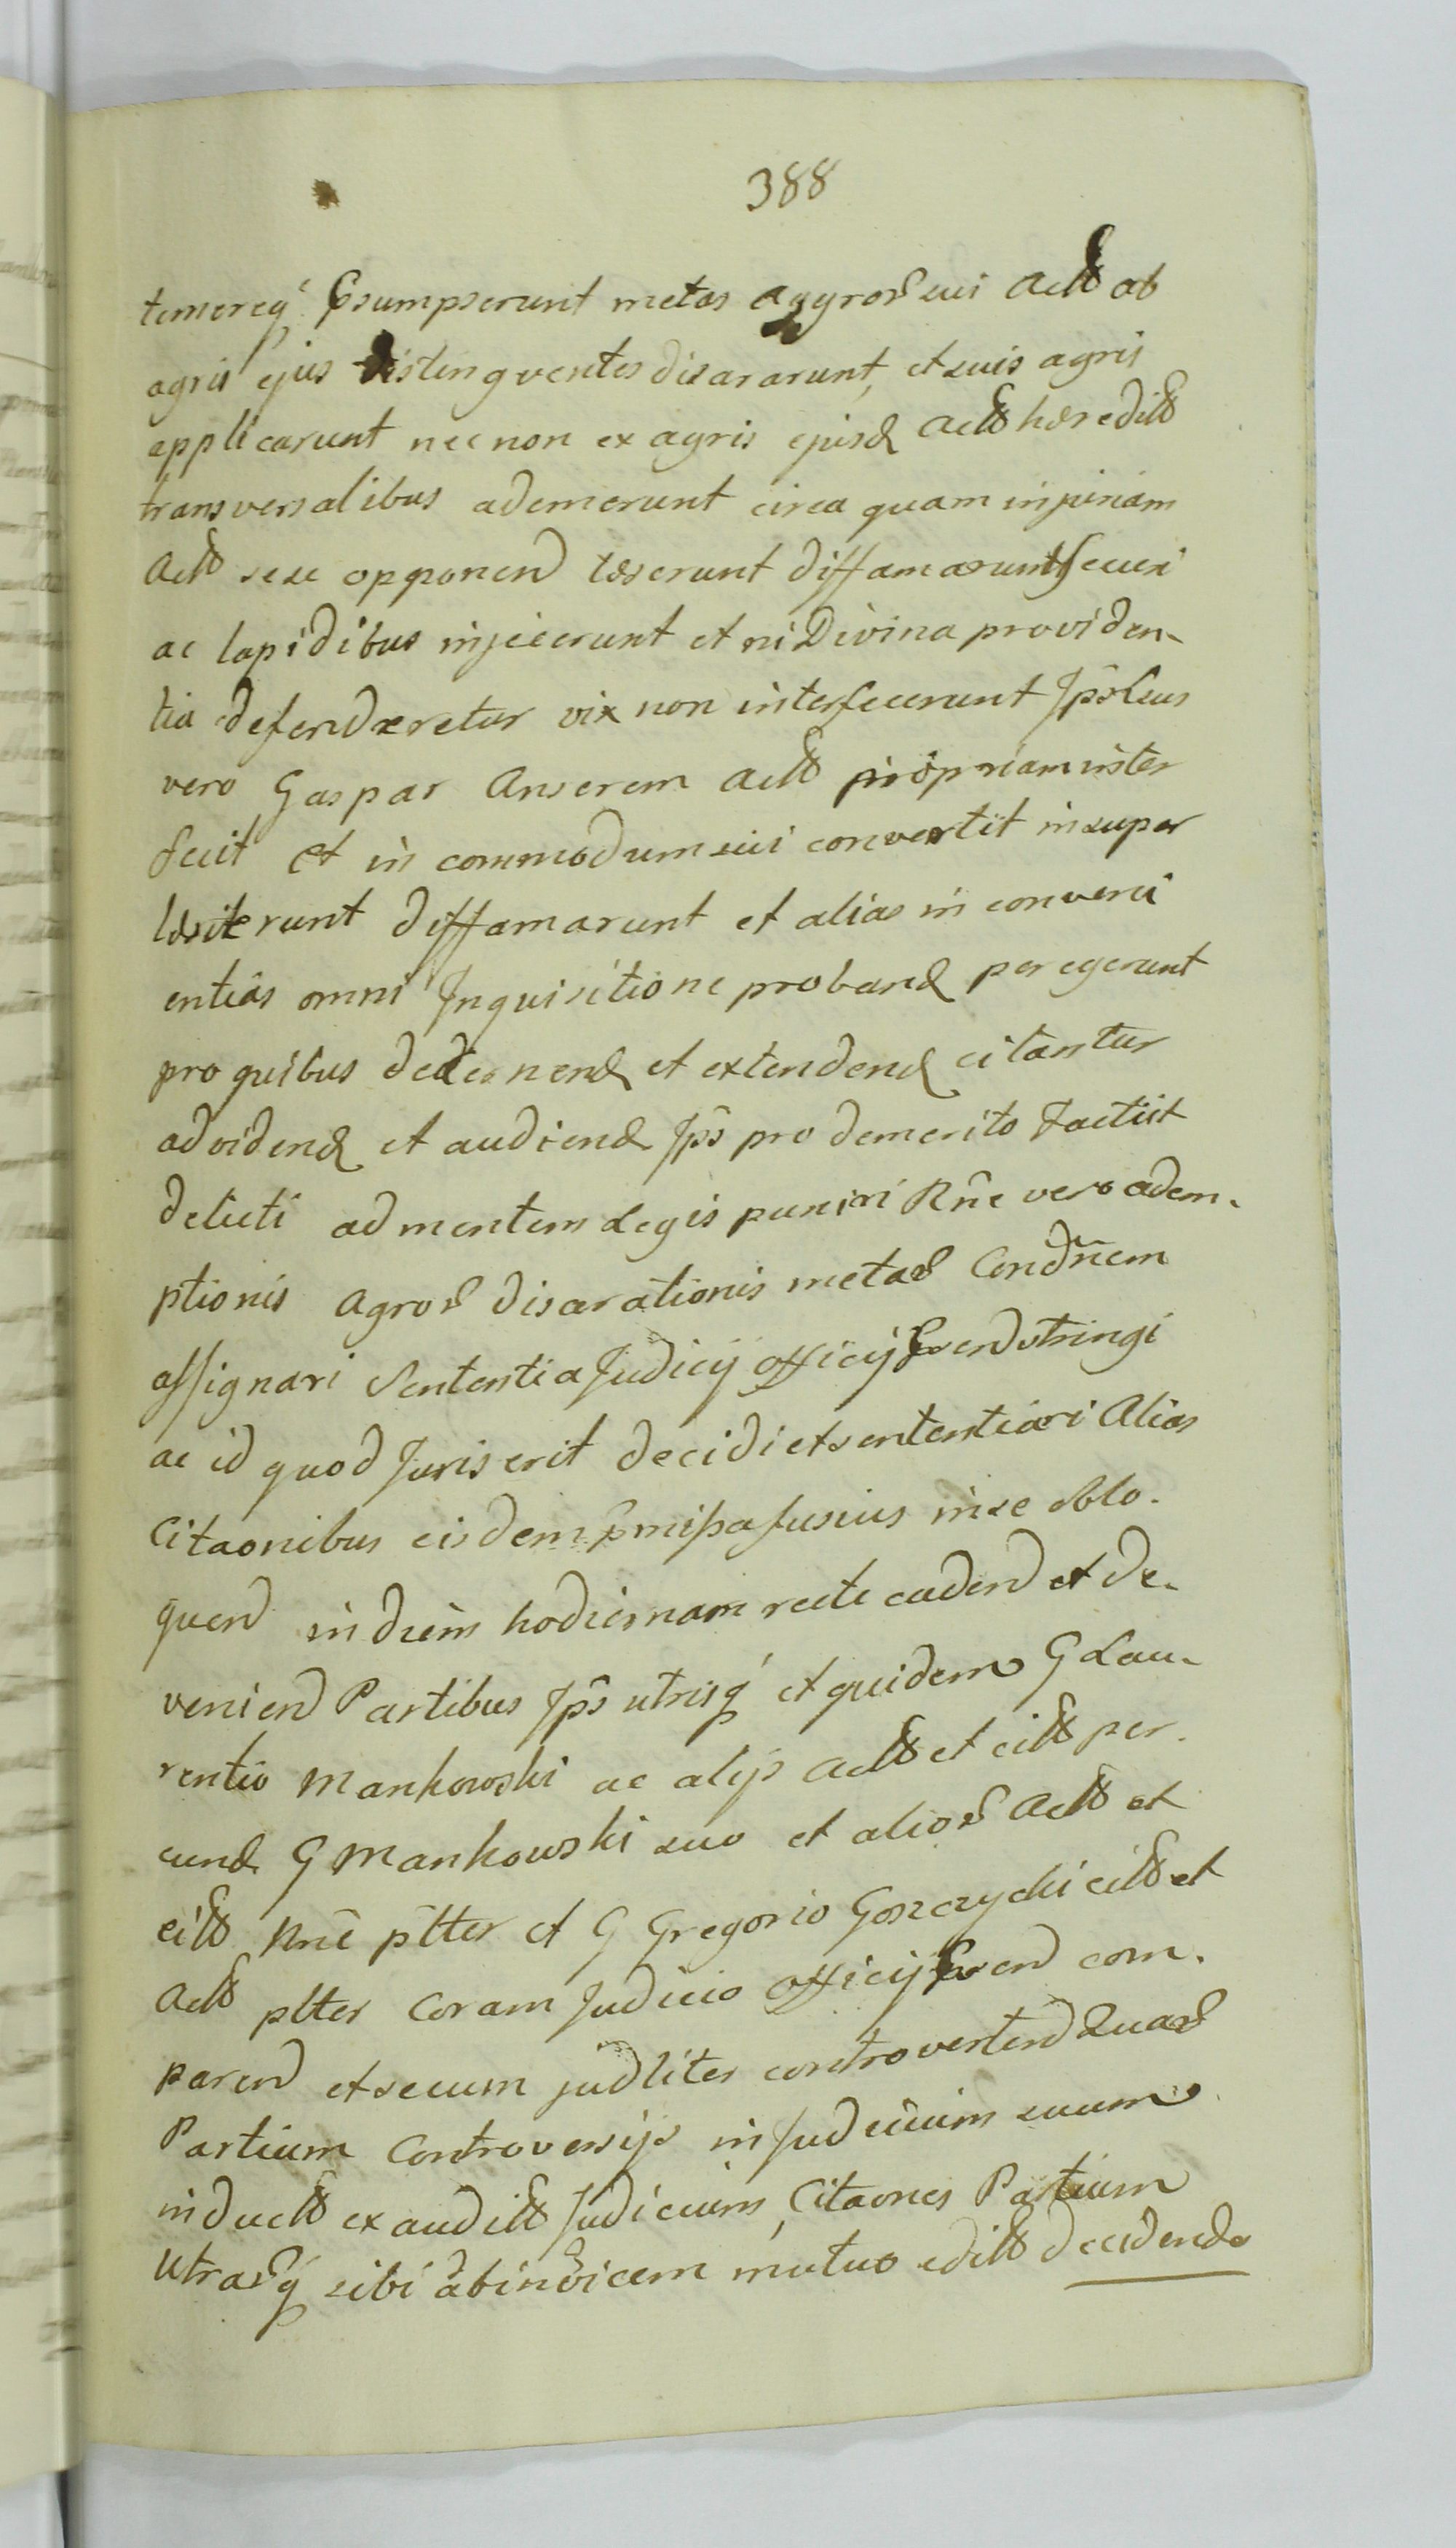 388
temereq́ p̃sumpserunt metas aggror̃ sui Actt͠ ab
agris ejus distingventes disararunt, et suis agris
applicarunt nec non ex agris ejusd Actt͠ hæreditt͠
transversalibus ademerunt circa quam injuriam
Actt͠ sese opponend læserunt diffamarunt securi
ac lapidibus injecerunt et ni Divina providen-
tia defenderetur vix non interfecerunt Jp̃s
vero Gaspar Anserem Actt͠ propriam inter
fecit et in commodum sui convertit insuper
læserunt diffamarunt et alias in conveni
entias omni Inquisitione proband peregerunt
pro quibus decernend et extendend citantur
ad vidend et audiend Jp̃s pro demerito
delicti ad mentem Legis puniri Rñe vero adem-
ptionis agror̃ disarationis metar̃ Condñem
assignari Sententia Judicij officij p̃sen dstringi
ac id quod Juris erit decidi et sententiari Alias
Citaonibus eisdem p̃missa fusius in se oblo-
quend in diem hodiernam recte cadend et de-
veniend Partibus Jp̃s utrisq́ et quidem G Lau-
rentio Mankowski ac alijs Actt͠ et citt͠ per-
eund G Mankowski suo et alior̃ Actt͠ et
citt͠ Nñe p̃ltter et G Gregorio Goszczycki citt͠ et
Actt͠ pltter Coram Judicio officij p̃send com-
parend et secum judliter controvertend Quar̃
Partium Controversijs in Judicium suum
inductt͠ exauditt͠ Judicium Citaones Partium
Utrar̃q́ sibi ab invicem mutuo editt͠ decidendo